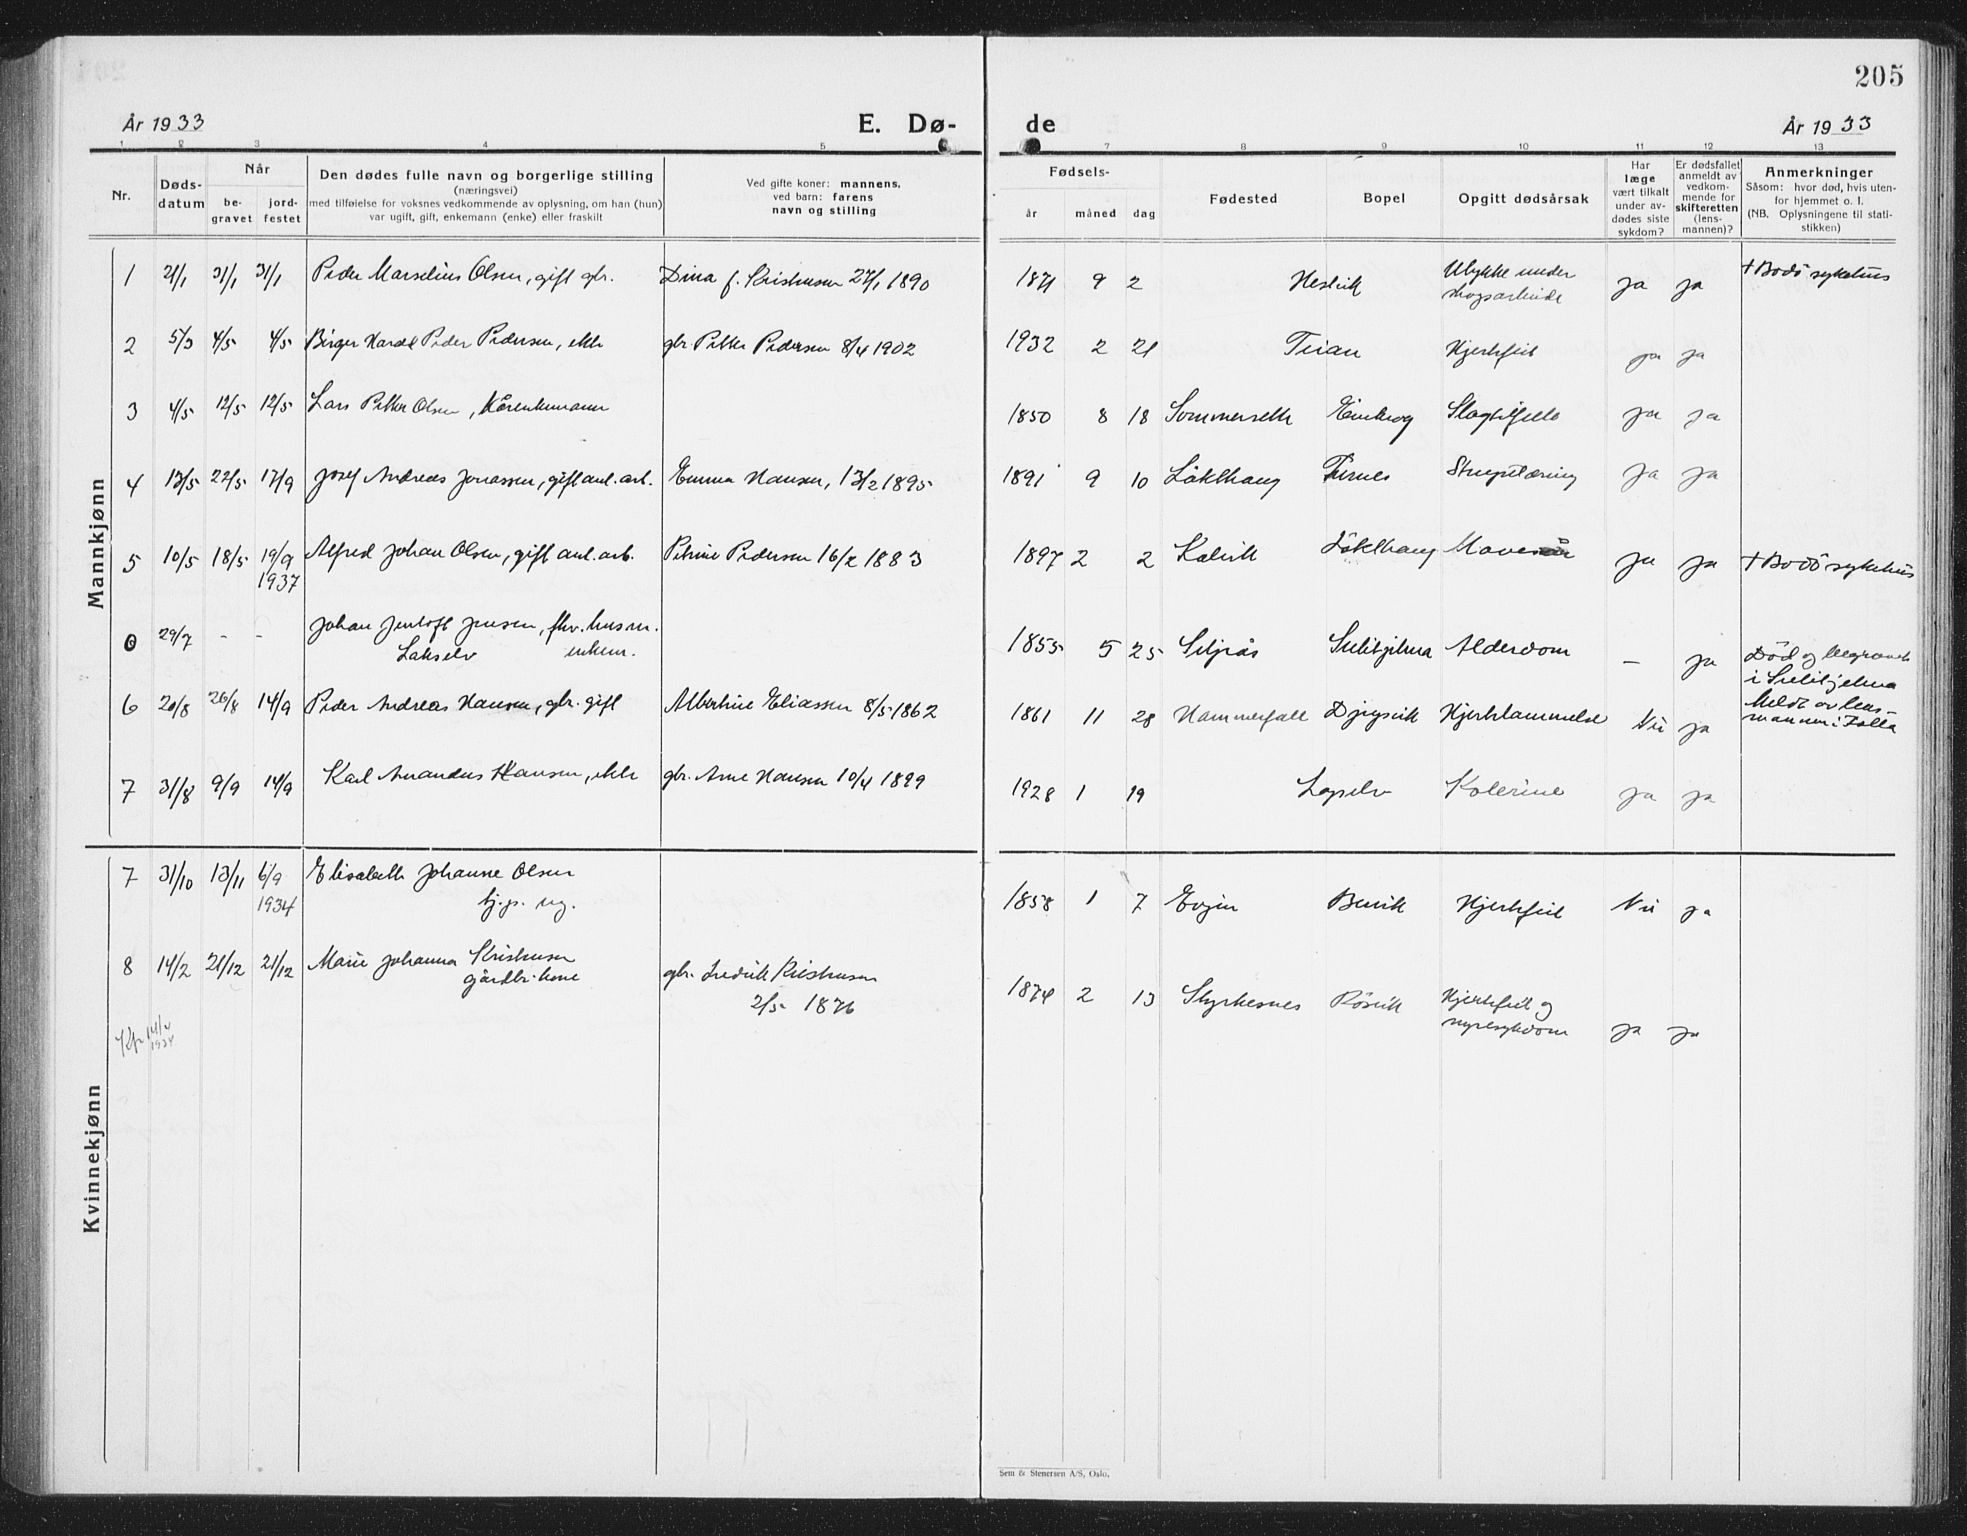 205
År 1933
E. Dø-
de
År 1933
1 2 3 4 5 6
7 8 9 10 11 12 13
Nr.
Døds-
datum
Når
be-
gravet
jord-
festet
Den dødes fulle navn og borgerlige stilling
(næringsvei)
med tilføielse for voksnes vedkommende av oplysning, om han (hun)
var ugift, gift, enkemann (enke) eller fraskilt
Ved gifte koner: mannens,
ved barn: farens
navn og stilling
Fødsels-
år måned dag
Fødested
Bopel
Opgitt dødsårsak
Har
læge
vært tilkalt
under av-
dødes siste
sykdom?
Er dødsfallet
anmeldt av
vedkom-
mende for
skifteretten
(lens-
mannen)?
Anmerkninger
Såsom: hvor død, hvis uten-
for hjemmet o. l.
(NB. Oplysningene til stati-
stikken)
Mannkjønn
1 21/1 31/1 31/1 Peder Marselius Olsen, gift gbr. Dina f. Kristensen 27/1 1890 1871 9 2 Hestvik Ulykke under
skogsarbeide ja ja + Bodö sykehus
2 5/3 4/5 4/5 Birger Harald Peder Pedersen, ekte gbr. Petter Pedersen 8/4 1902 1932 2 21 Hjertefeil ja ja
3 4/5 12/5 12/5 Lars Petter Olsen, Kårenkemann 1850 8 18 Sommerseth Slagtilfelle ja ja
4 13/5 22/5 17/9 Josef Andreas Jonassen, gift anl. arb. Emma Hansen, 13/2 1895 1891 9 10 Löklhaug Furnes Strupetæring ja ja
5 10/5 18/5 19/9
1937 Alfred Johan Olsen, gift anl. arb. Petrine Pedersen 16/2 1883 1897 2 2 Kalvik Löklhaug Mavesår ja ja + Bodö sykehus
0 29/7 - - Johan Jentoft Jensen, fhv. husm.
Lakselv enkem. 1855 5 25 Setså Sulitjelma Alderdom - ja Död og begravet
i Sulitjelma
Meldt av lens-
mannen i Folla
6 20/8 26/8 14/9 Peder Andreas Hansen, gbr. gift Albertine Eliassen 8/5 1862 1861 11 28 Hammerfall Djupvik Hjertelammelse Nei ja
7 31/8 9/9 14/9 Karl Amandus Hansen, ekte gbr. Arne Hansen 10/4 1899 1928 1 19 Lapselv Kolerine ja ja
Kvinnekjønn
7 31/10 13/11 6/9
1934 Elisabeth Johanne Olsen
tj.p. ug. 1858 1 7 Evjen Hjertefeil Nei ja
8 14/2 21/12 21/12 Marie Johanna Kristensen
gårdbr. kone gbr. Fredrik Kristensen
2/5 1876 1874 2 13 Styrkesnes Rösvik Hjertefeil og
nyresykdom ja ja
14/4
1934
Sem & Stenersen A/S, Oslo.